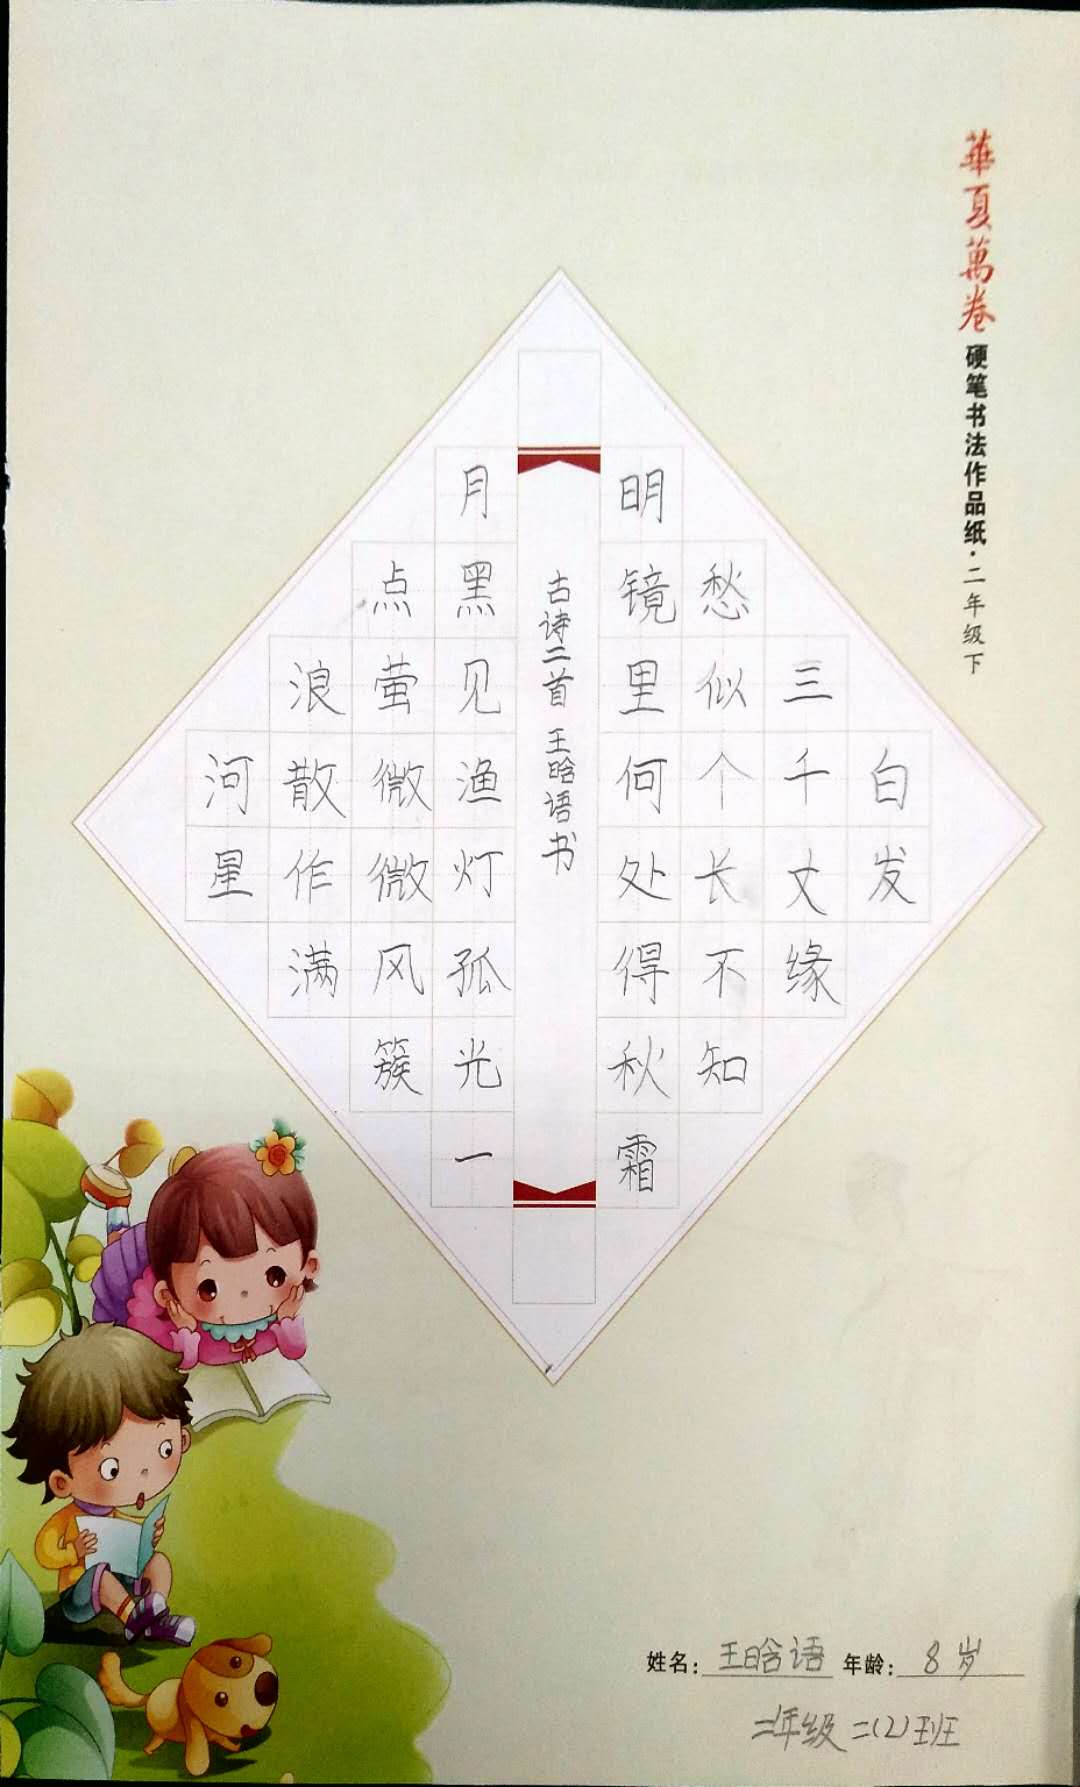 華夏萬卷
硬笔书法作品纸·二年级下
白发
三千丈缘
愁似个长不知
明镜里何处得秋霜
古诗二首 王晗语书
月黑见渔灯孤光一
点萤微微风簇
浪散作满
河星
姓名：王晗语 年龄：8岁
二年级二(2)班